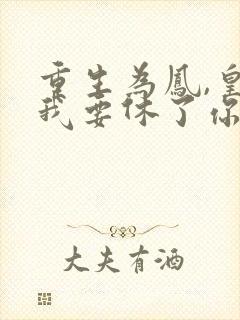 重生為鳳,皇
我要休了你
大夫有酒